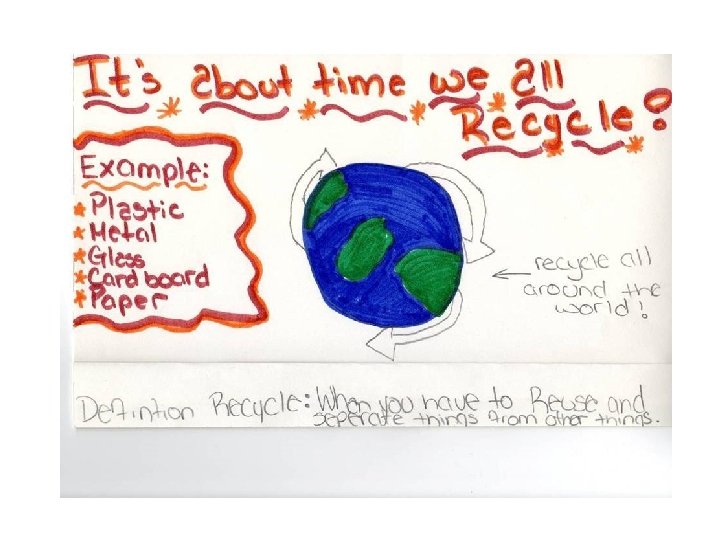 It's about time we all
Recycle?
Example:
* Plastic
* Metal
* Glass
* Cardboard
* Paper
recycle all
around the
world!
Defintion Recycle: When you have to Reuse and
seperate things from other things.